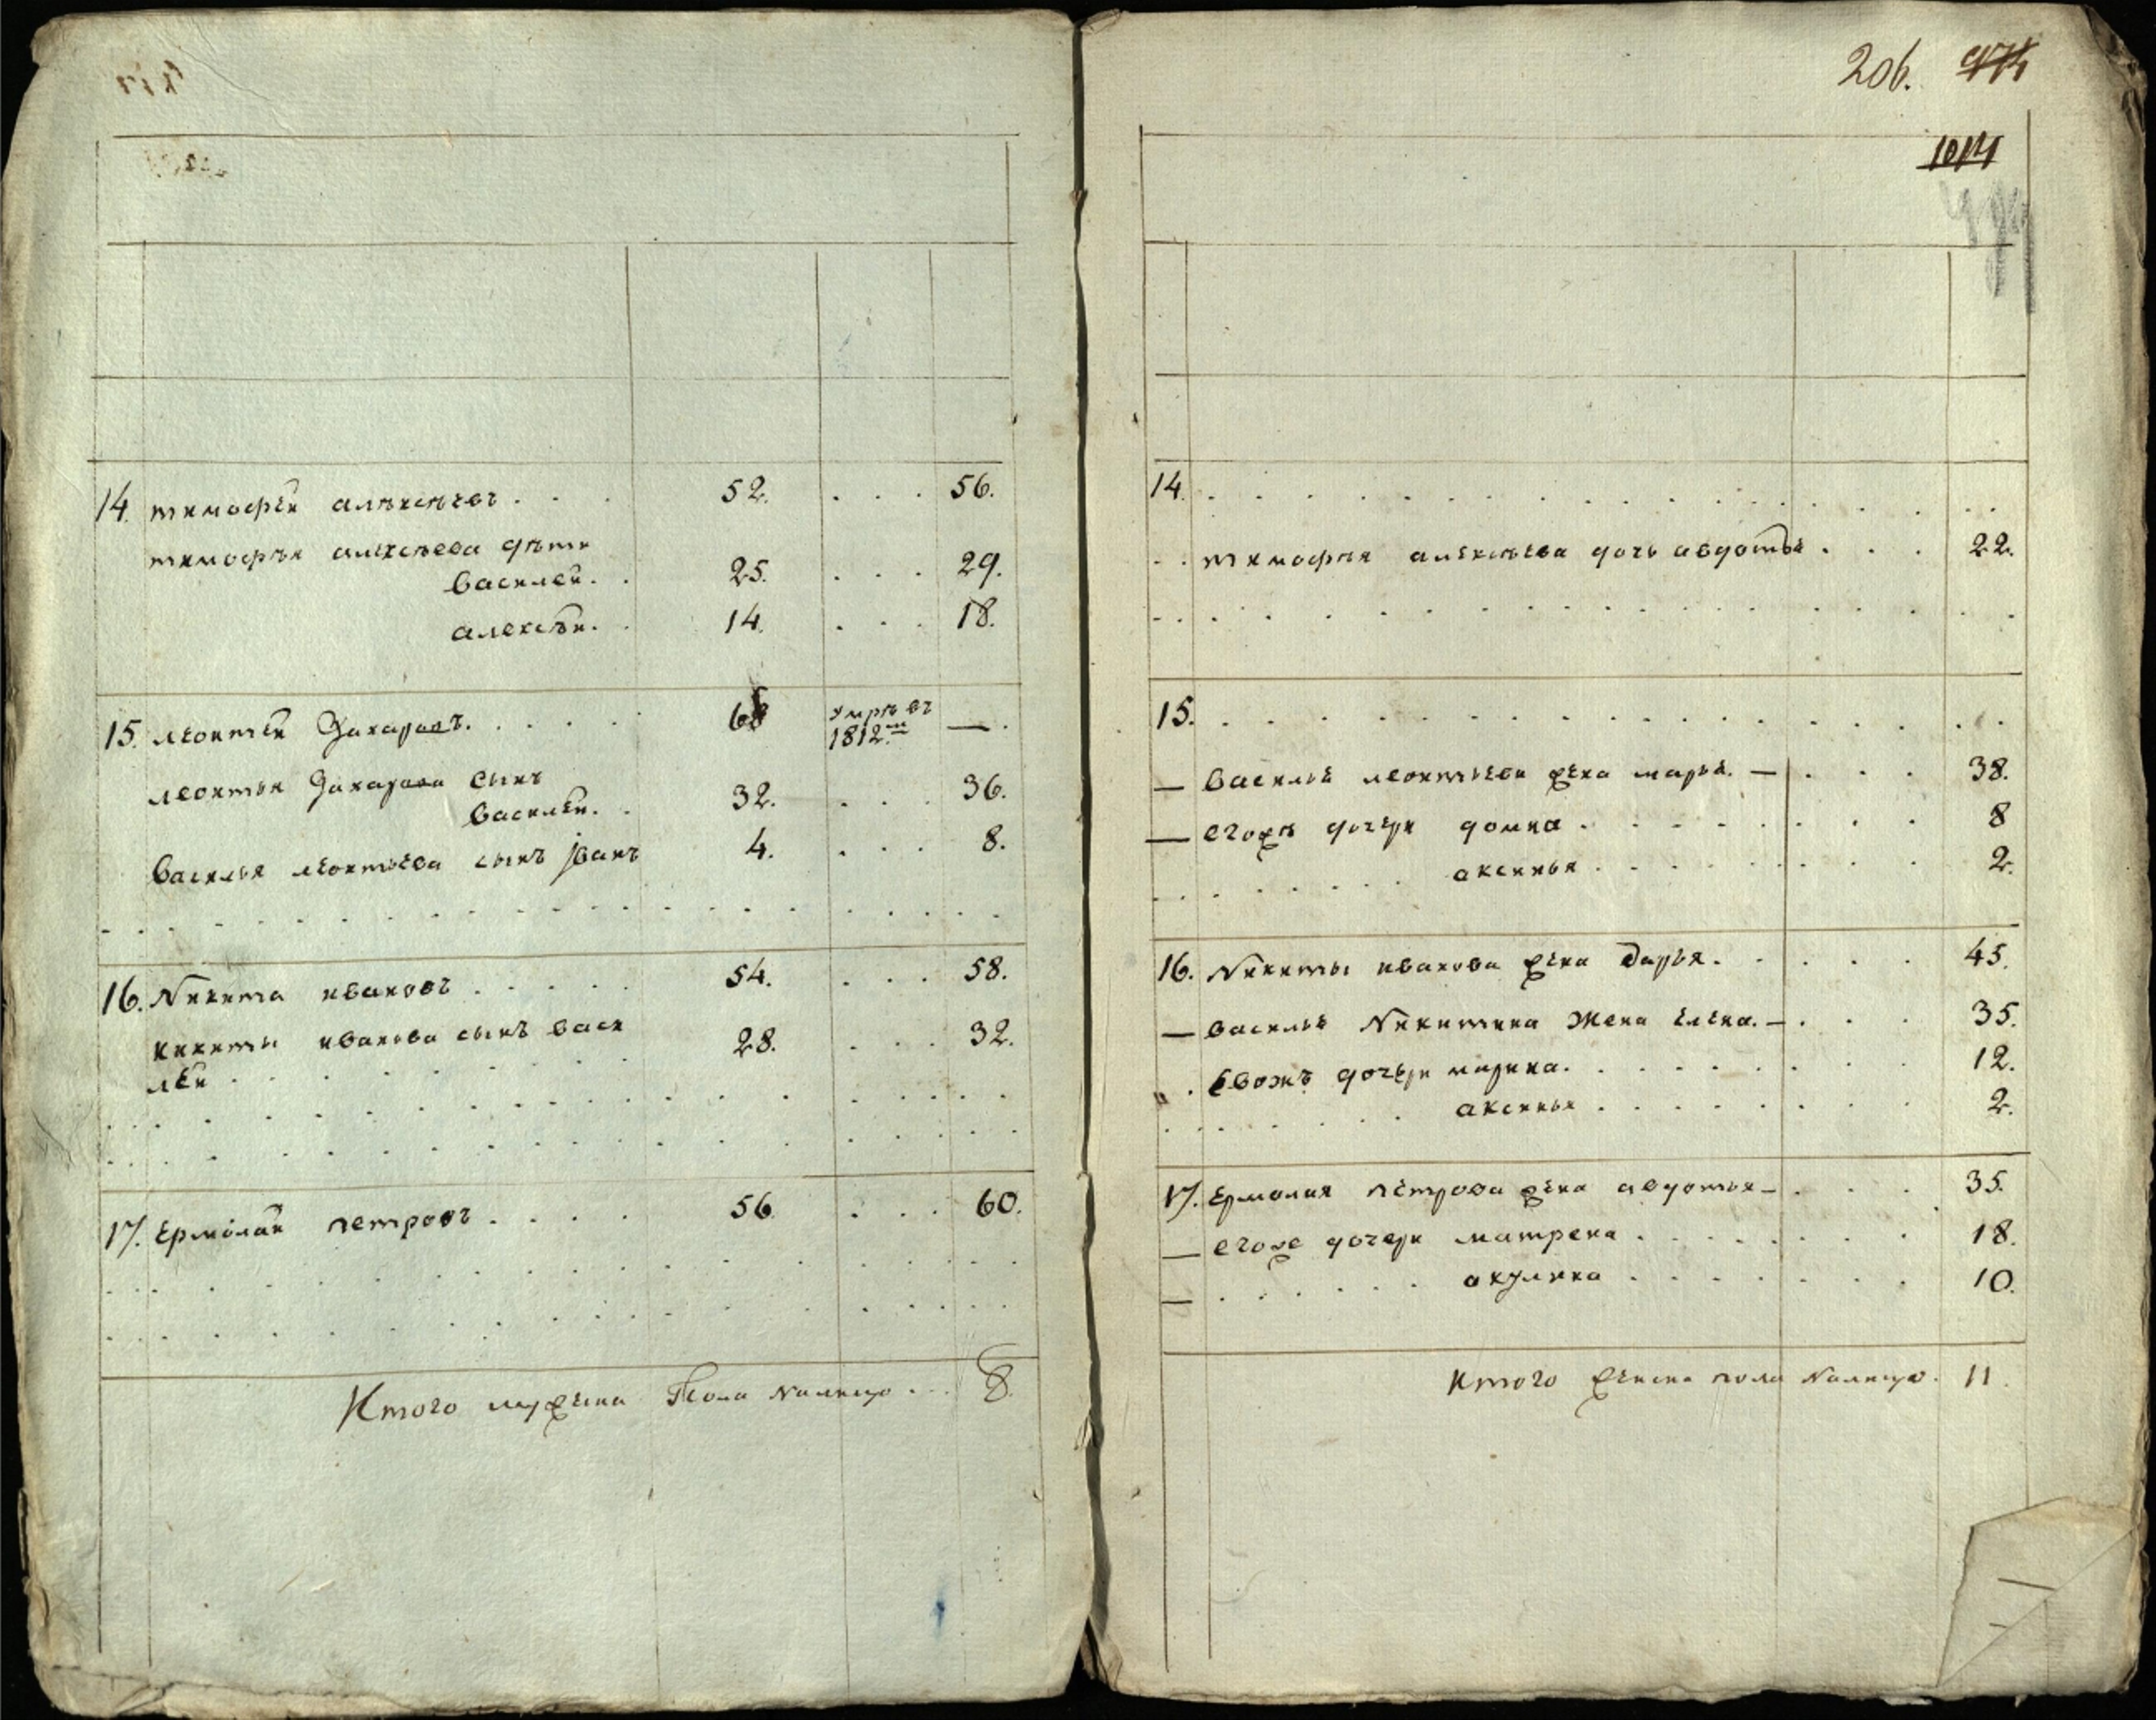 14. тимофей алѣксѣевъ . . . 52. . . . 56.
тимофѣя алексѣева дѣти
василей. . 25. . . . 29.
алексѣй. . 14. . . . 18.
15. леонтей Захаровъ. . . . . 68 умрѣ въ 1812м — .
леонтья Захарова сынъ
василей. . 32. . . . 36.
василья леонтьева сынъ јванъ 4. . . . 8.
16. Никита ивановъ . . . . . 54. . . . 58.
никиты иванова сынъ васи 28. . . . 32.
лей . . . . . .
17. Ермолай петровъ . . . . 56. . . . 60.
Итого мужеска Пола Налицо . . . 8.
206. 974
1014
14. . . . . . . . .
. . тимофѣя алексѣева дочь авдотья . . . 22.
15. . . . . . . . .
— василья леонтьева жена марья. — . . . 38.
— егожъ дочери домна . . . . . . . 8
аксинья . . . . . . . 2.
16. Никиты иванова жена Дарья. . . . . 45.
— василья Никитина Жена елена. — . . . 35.
. Евожъ дочери марина. . . . . . . 12.
аксинья . . . . . . . 2.
17. Ермолая петрова жена авдотья — . . . 35.
— егоже дочери матрена . . . . . . . 18.
— акулина . . . . . . . 10.
Итого женска пола Налицо. 11.